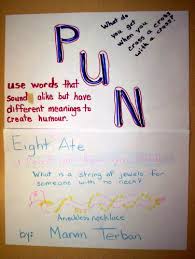 What do
you get
when you
cross a
with a
PUN
use words that
sound alike but have
different meanings to
create humour.
Eight Ate
What is a string of jewels for
someone with no neck?
A neckless necklace
by: Marvin Terban